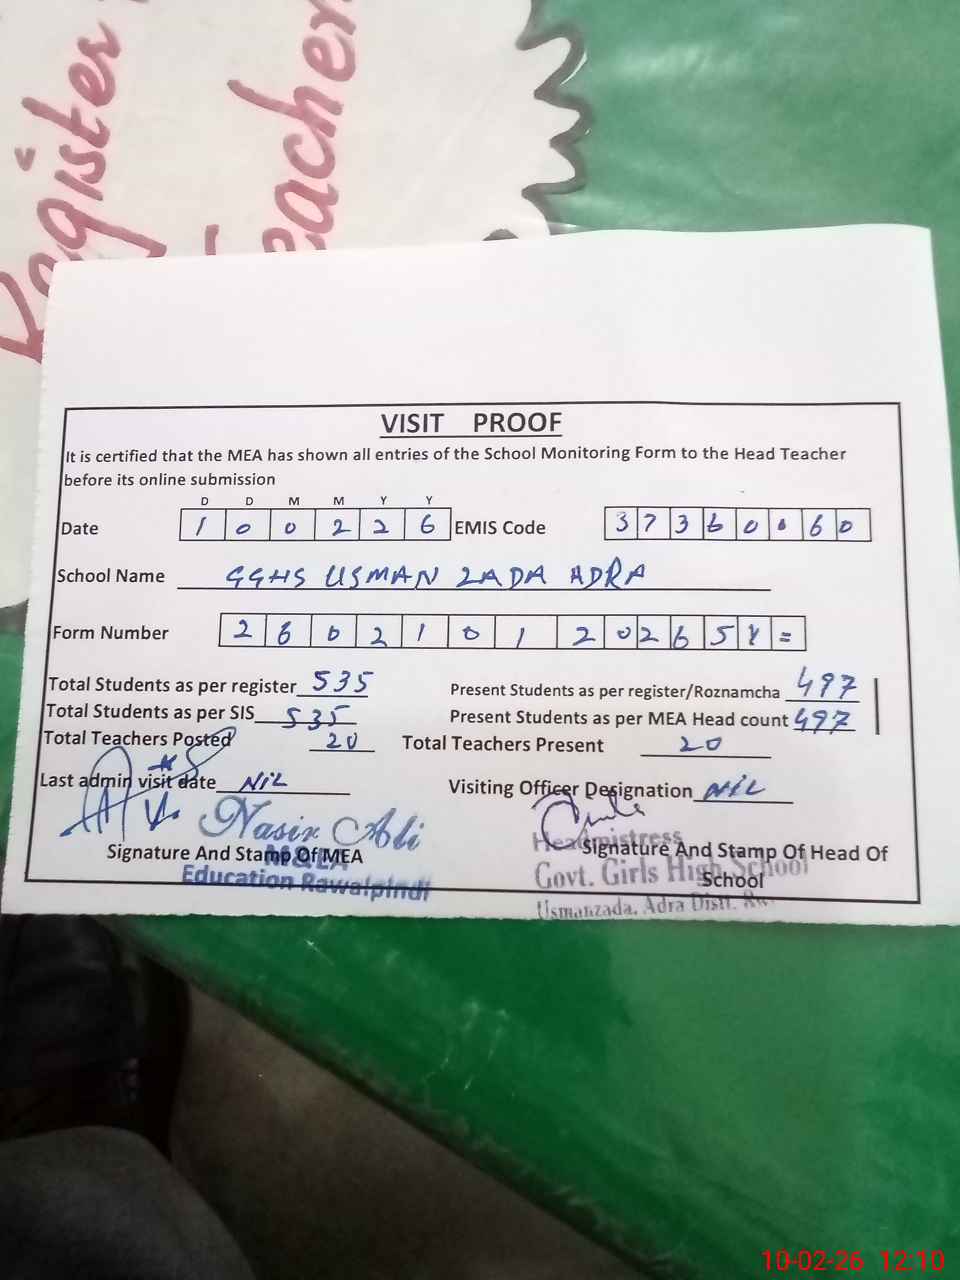 Register
Teacher
VISIT PROOF
It is certified that the MEA has shown all entries of the School Monitoring Form to the Head Teacher
before its online submission
D D M M Y Y
Date 1 0 0 2 2 6 EMIS Code 3 7 3 6 0 0 6 0
School Name GGHS USMAN ZADA ADRA
Form Number 2 6 0 2 1 0 1 2 0 2 6 5 Y =
Total Students as per register 535 Present Students as per register/Roznamcha 497
Total Students as per SIS 535 Present Students as per MEA Head count 497
Total Teachers Posted 20 Total Teachers Present 20
Last admin visit date NIL Visiting Officer Designation NIL
Nasir Ali
M&EA
Education Rawalpindi
Signature And Stamp Of MEA
Headmistress
Govt. Girls High School
Usmanzada, Adra Distt.
Signature And Stamp Of Head Of
School
10-02-26 12:10